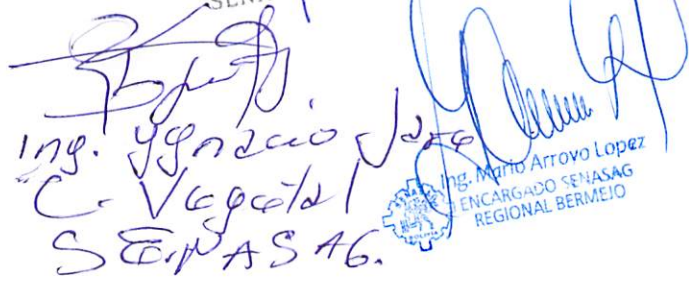 Ing. Ygnacio Jara
C. Vegetal
SENASAG.
Ing. Mario Arroyo Lopez
ENCARGADO SENASAG
REGIONAL BERMEJO
BOLIVIA